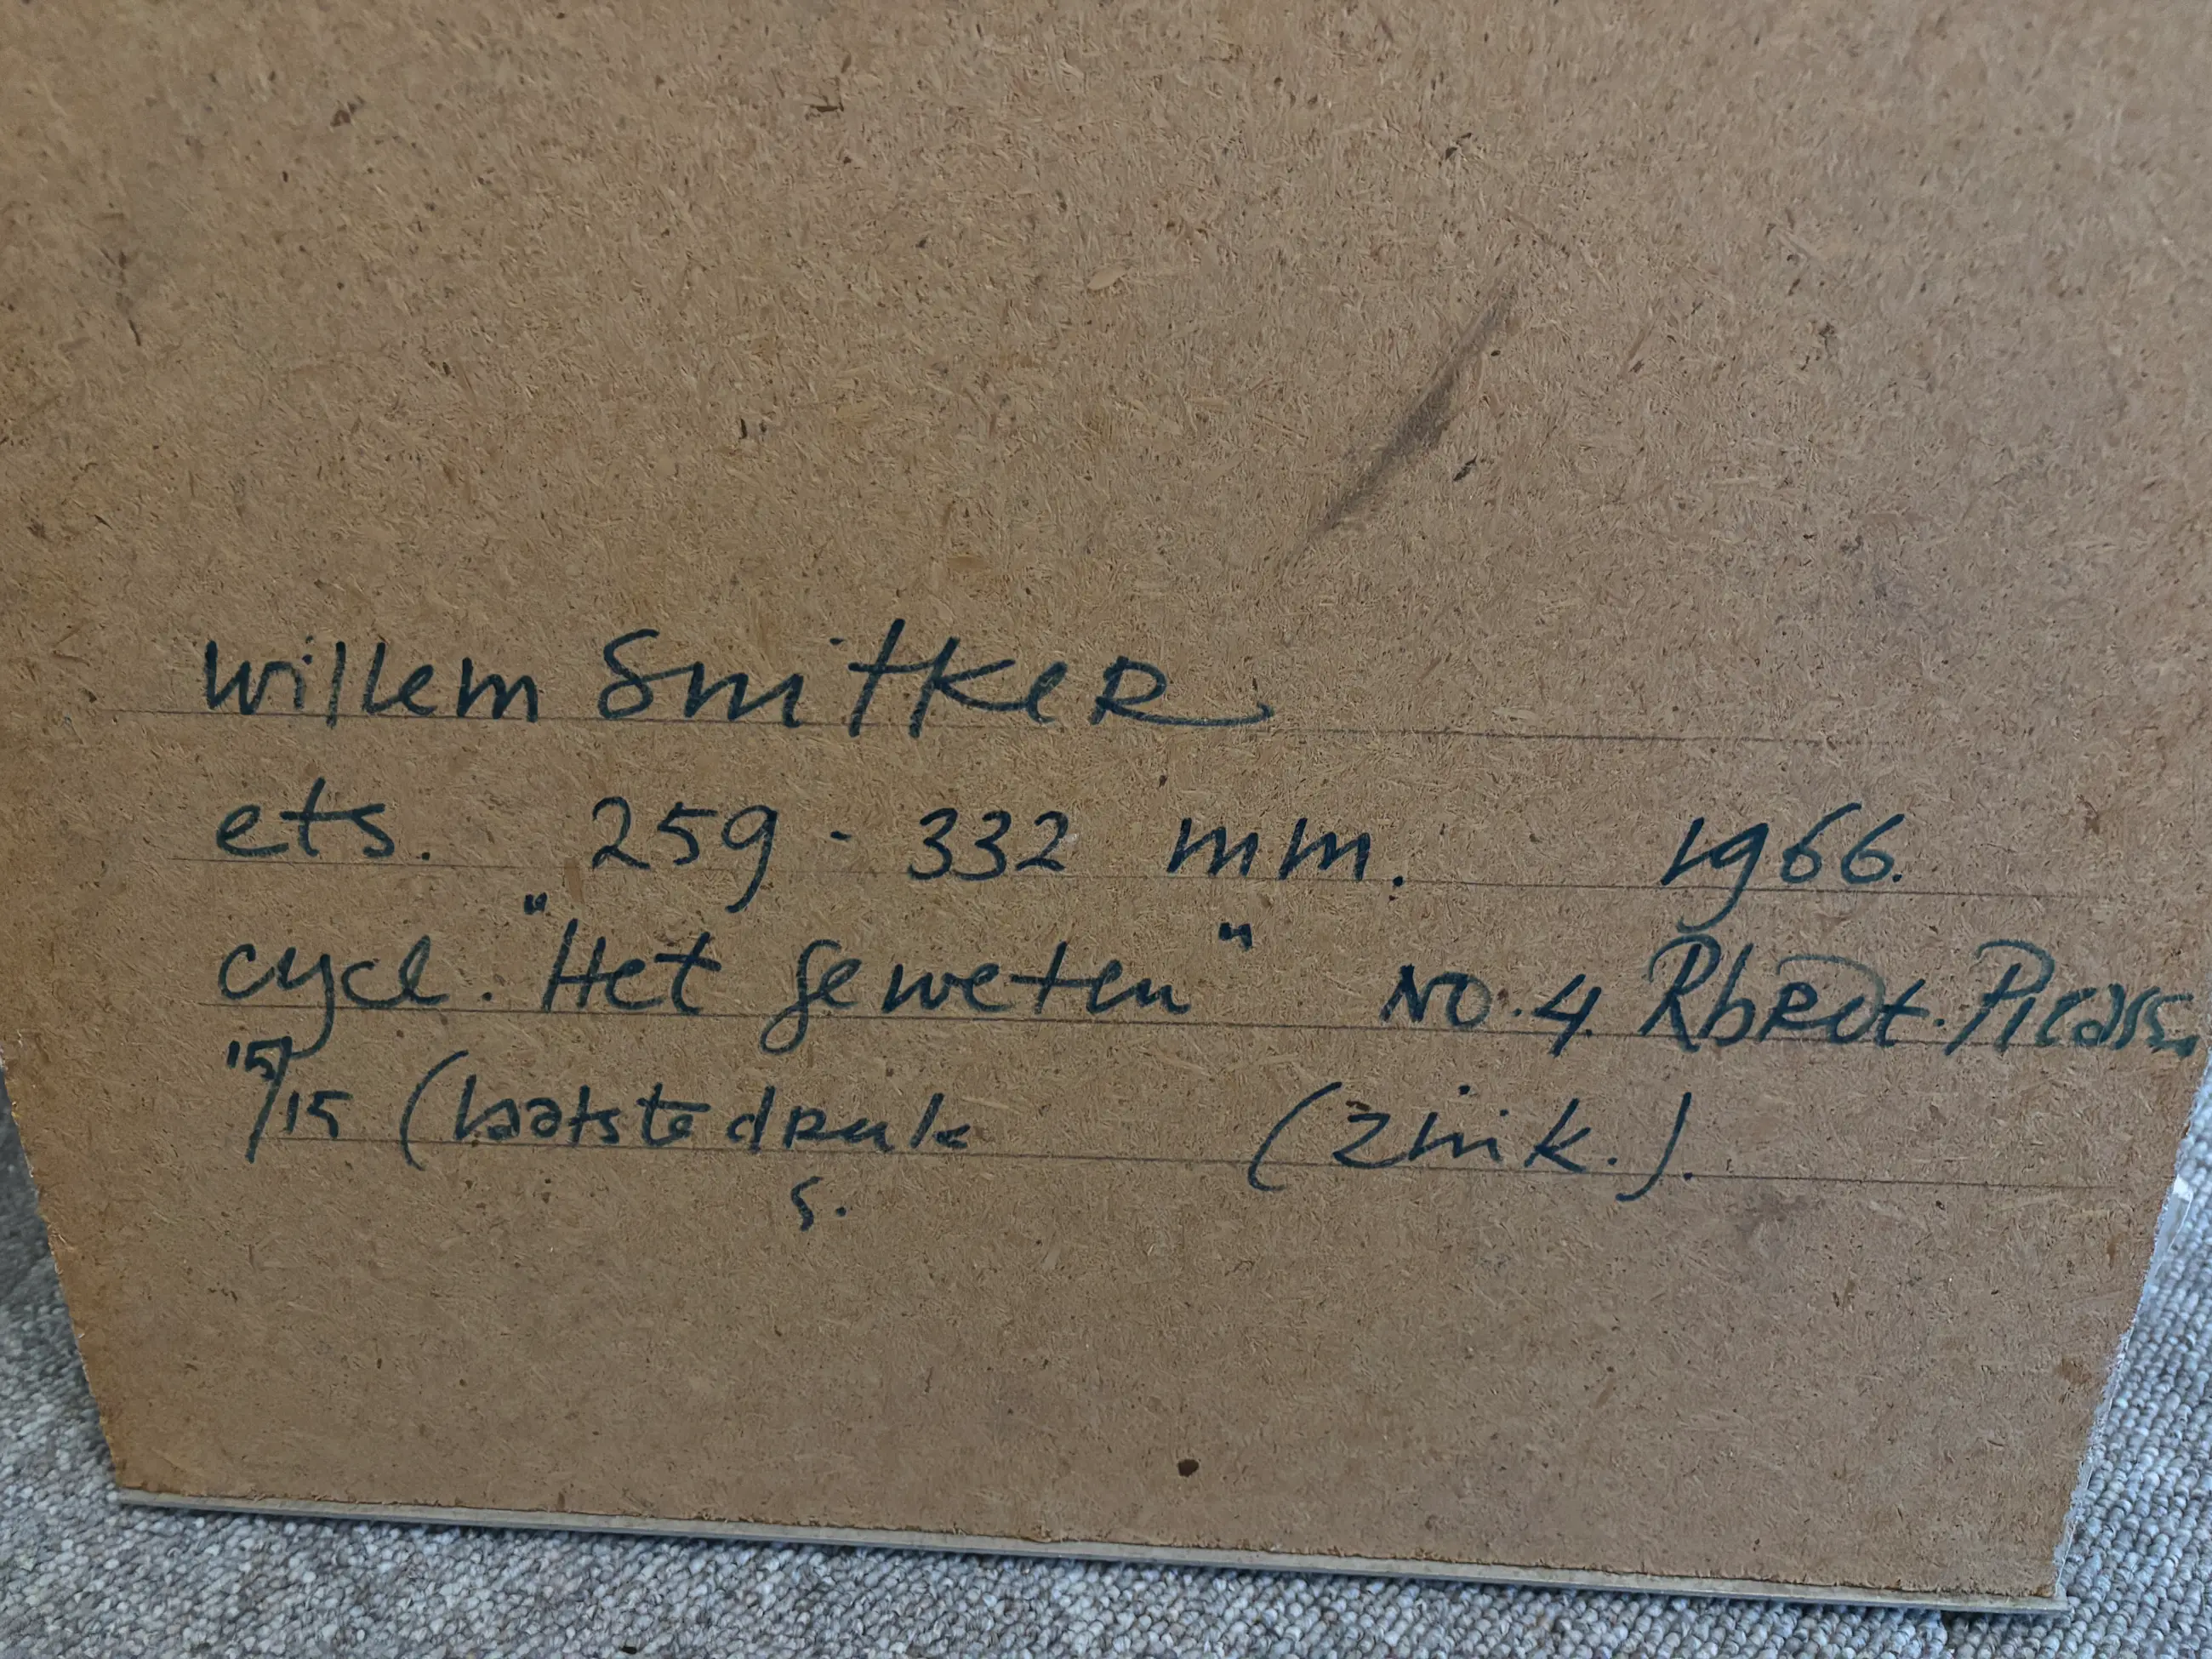 Willem SmitKER
ets. 259 - 332 mm. 1966.
cycl. "Het geweten" NO. 4. RbRdt. Picass.
15/15 (laatste dRuk (zink.).
s.